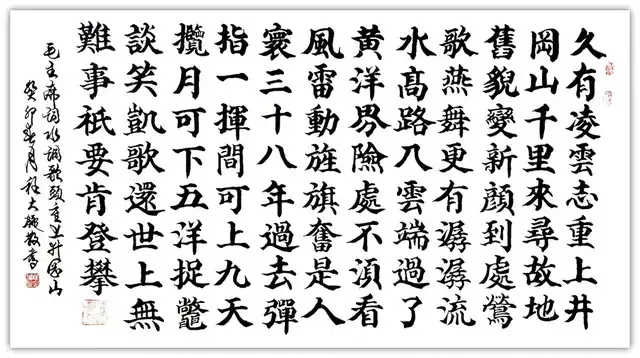 久有凌雲志重上井
岡山千里來尋故地
舊貌變新顏到處鶯
歌燕舞更有潺潺流
水髙路入雲端過了
黄洋界險處不須看
風雷動旌旗奮是人
寰三十八年過去彈
指一揮間可上九天
攬月可下五洋捉鼈
談笑凱歌還世上無
難事祇要肯登攀
毛主席詞水調歌頭重上井岡山
癸卯月大敬書